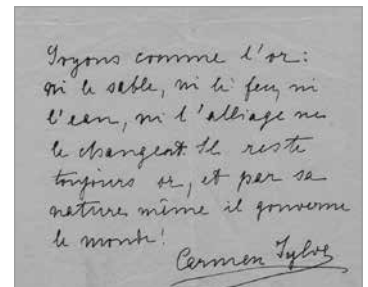 Soyons comme l'or:
ni le sable, ni le feu, ni
l'eau, ni l'alliage ne
le changent. Il reste
toujours or, et par sa
nature même il gouverne
le monde!
Carmen Sylva